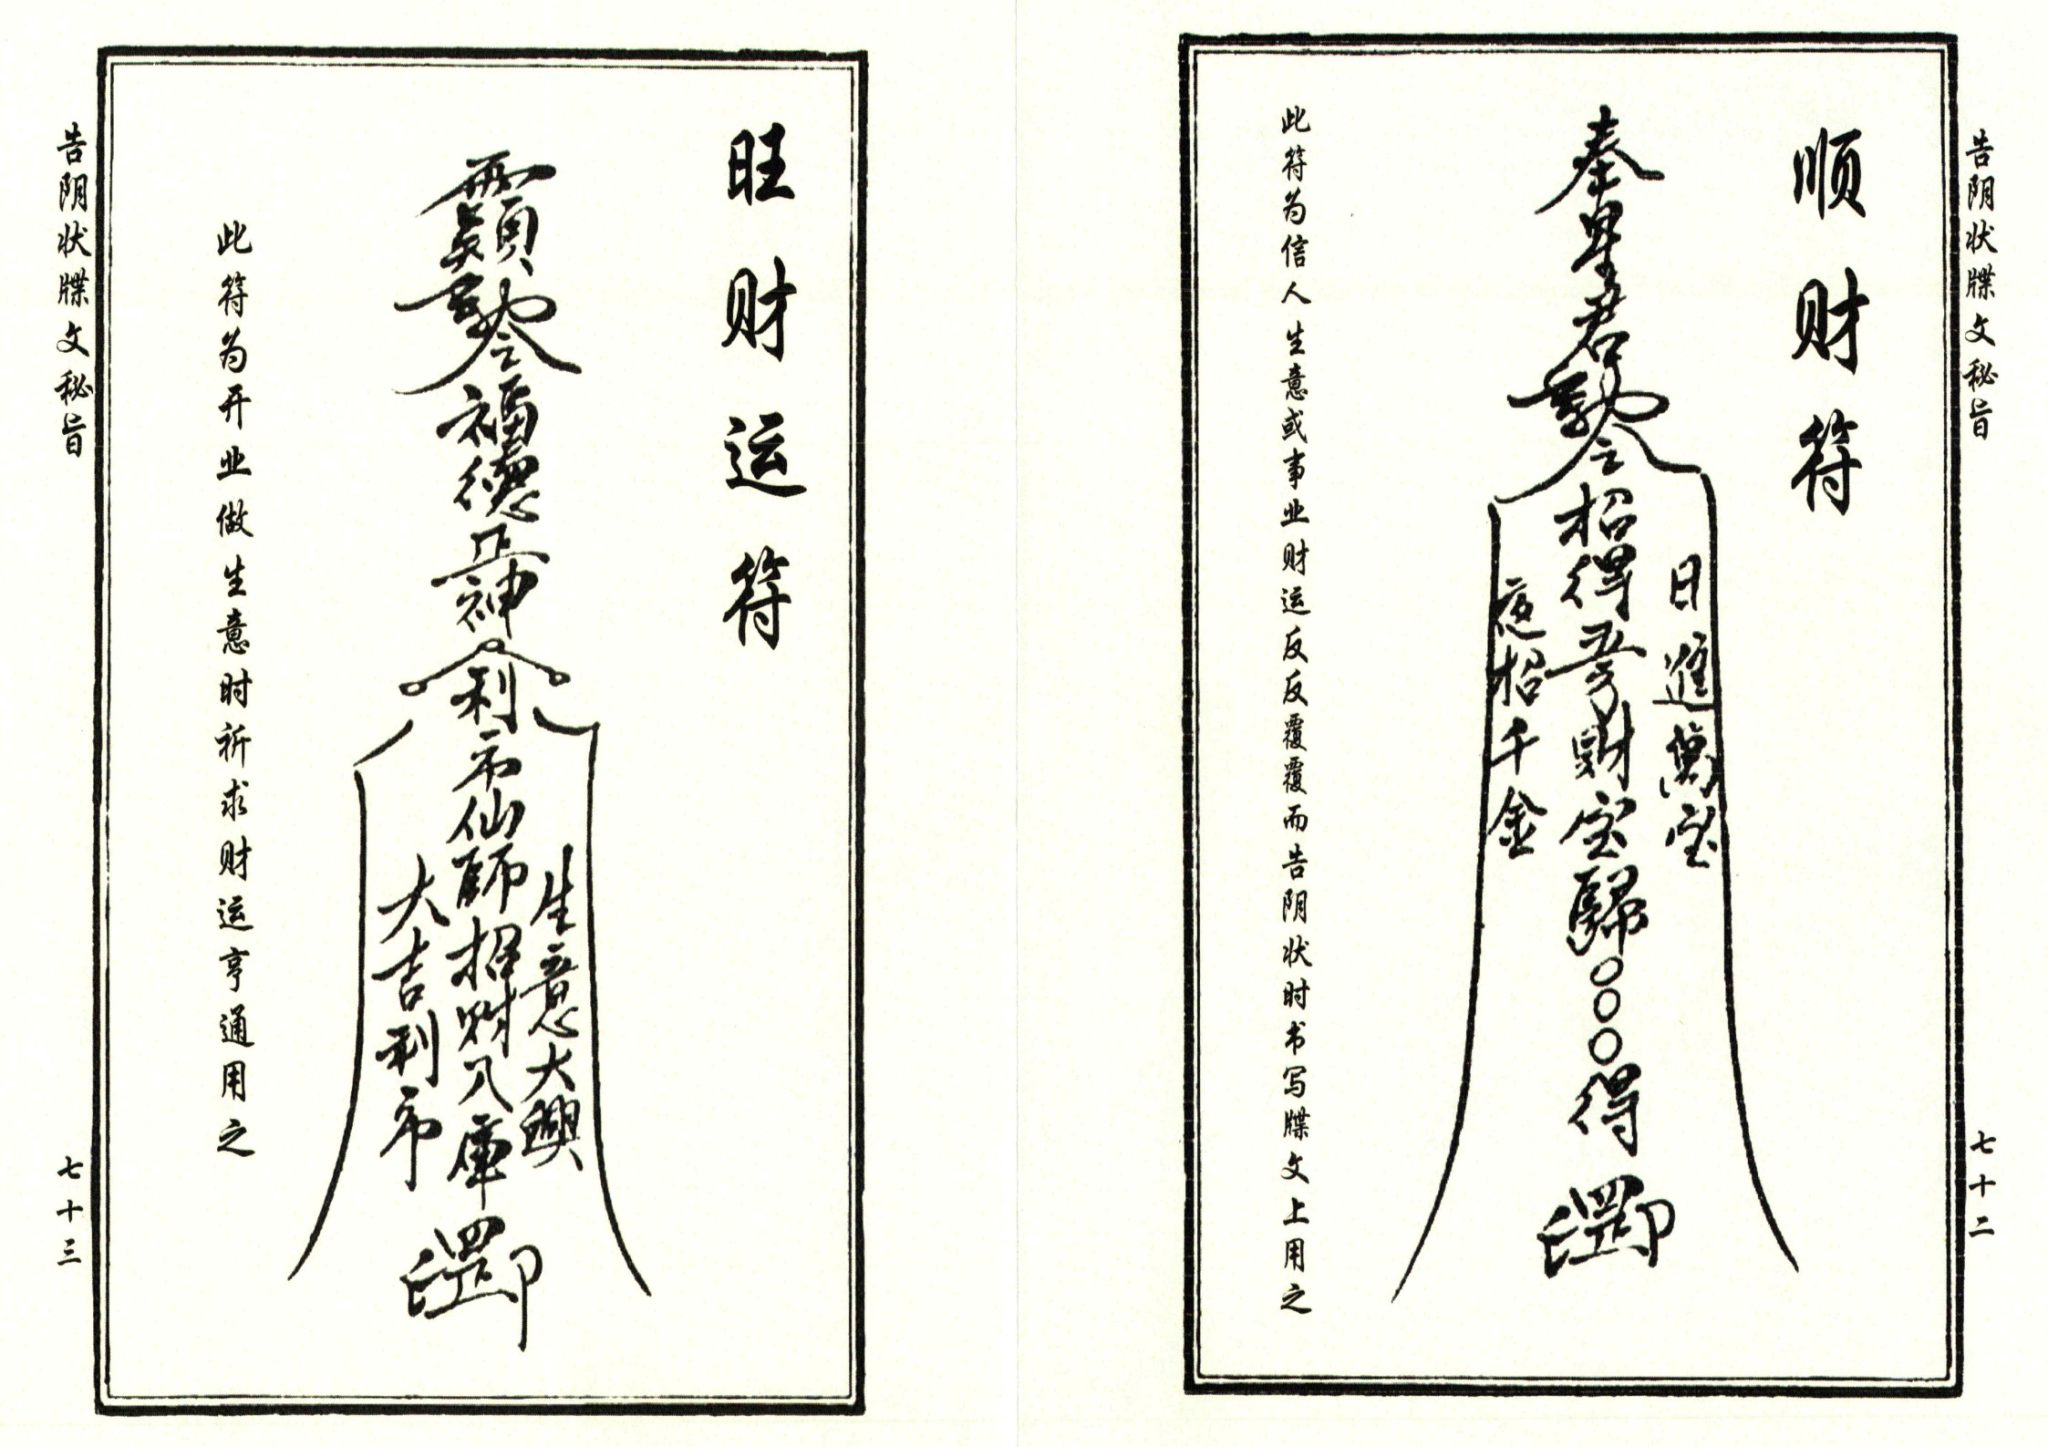 告阴状牒文秘旨
七十二
顺财符
日進萬宝
奉皇君勅令招得吾財宝歸○○○得
夜招千金
此符为信人生意或事业财运反反覆覆而告阴状时书写牒文上用之
旺财运符
勅令福德正神
利市仙師招財入庫
生意大興
大吉利市
此符为开业做生意时祈求财运亨通用之
告阴状牒文秘旨
七十三